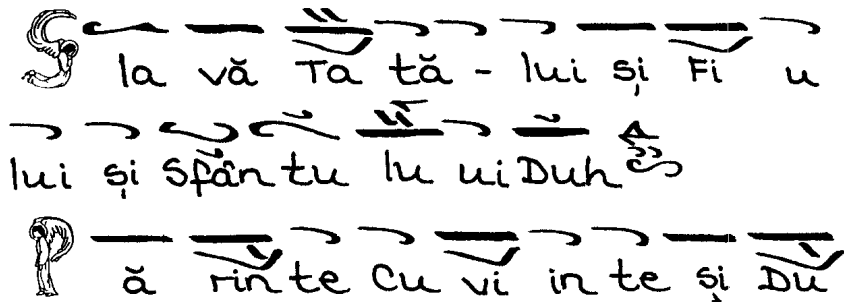 S la vă Ta tă - lui și Fi u
lui și Sfân tu lu ui Duh
P ă rin te Cu vi in te și Du